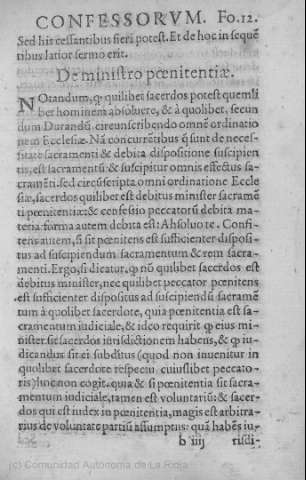 CONFESSORVM. Fo.12.
Sed his cessantibus fieri potest. Et de hoc in sequē
tibus latior sermo erit.
De ministro pœnitentiæ.
NOtandum, ꝙ quilibet sacerdos potest quemli
bet hominem absoluere, & à quolibet, secun
dum Durandū circunscribendo omnē ordinatio
nem Ecclesiæ. Nā concurrētibus q̄ sunt de neces-
sitate sacramenti & debita dispositione suscipien
tis, est sacramentū & suscipitur omnis effectus sa-
cramēti. sed circūscripta omni ordinatione Eccle
siæ, sacerdos quilibet est debitus minister sacramē
ti pœnitentiæ: & confessio peccatorū debita ma-
teria: forma autem debita est: Absoluo te. Confi-
tens autem, si sit pœnitens est sufficienter disposi-
tus ad suscipiendum sacramentum & rem sacra-
menti. Ergo, si dicatur, ꝙ nō quilibet sacerdos est
debitus minister, nec quilibet peccator pœnitens
est sufficienter dispositus ad suscipiendū sacramē
tum à quolibet sacerdote, quia pœnitentia est sa-
cramentum iudiciale, & ideo requirit ꝙ eius mi-
nister sit sacerdos iurisdictionem habens, & ꝙ iu-
dicandus sit ei subditus (quod non inuenitur in
quolibet sacerdote respectu cuiuslibet peccato-
ris) hoc non cogit. quia & si pœnitentia sit sacra-
mentum iudiciale, tamen est voluntariū: & sacer-
dos qui est iudex in pœnitentia, magis est arbitra-
rius de voluntate partiū assumptus: quā habēs iu-
b iiij risdi-
(c) Comunidad Autónoma de La Rioja